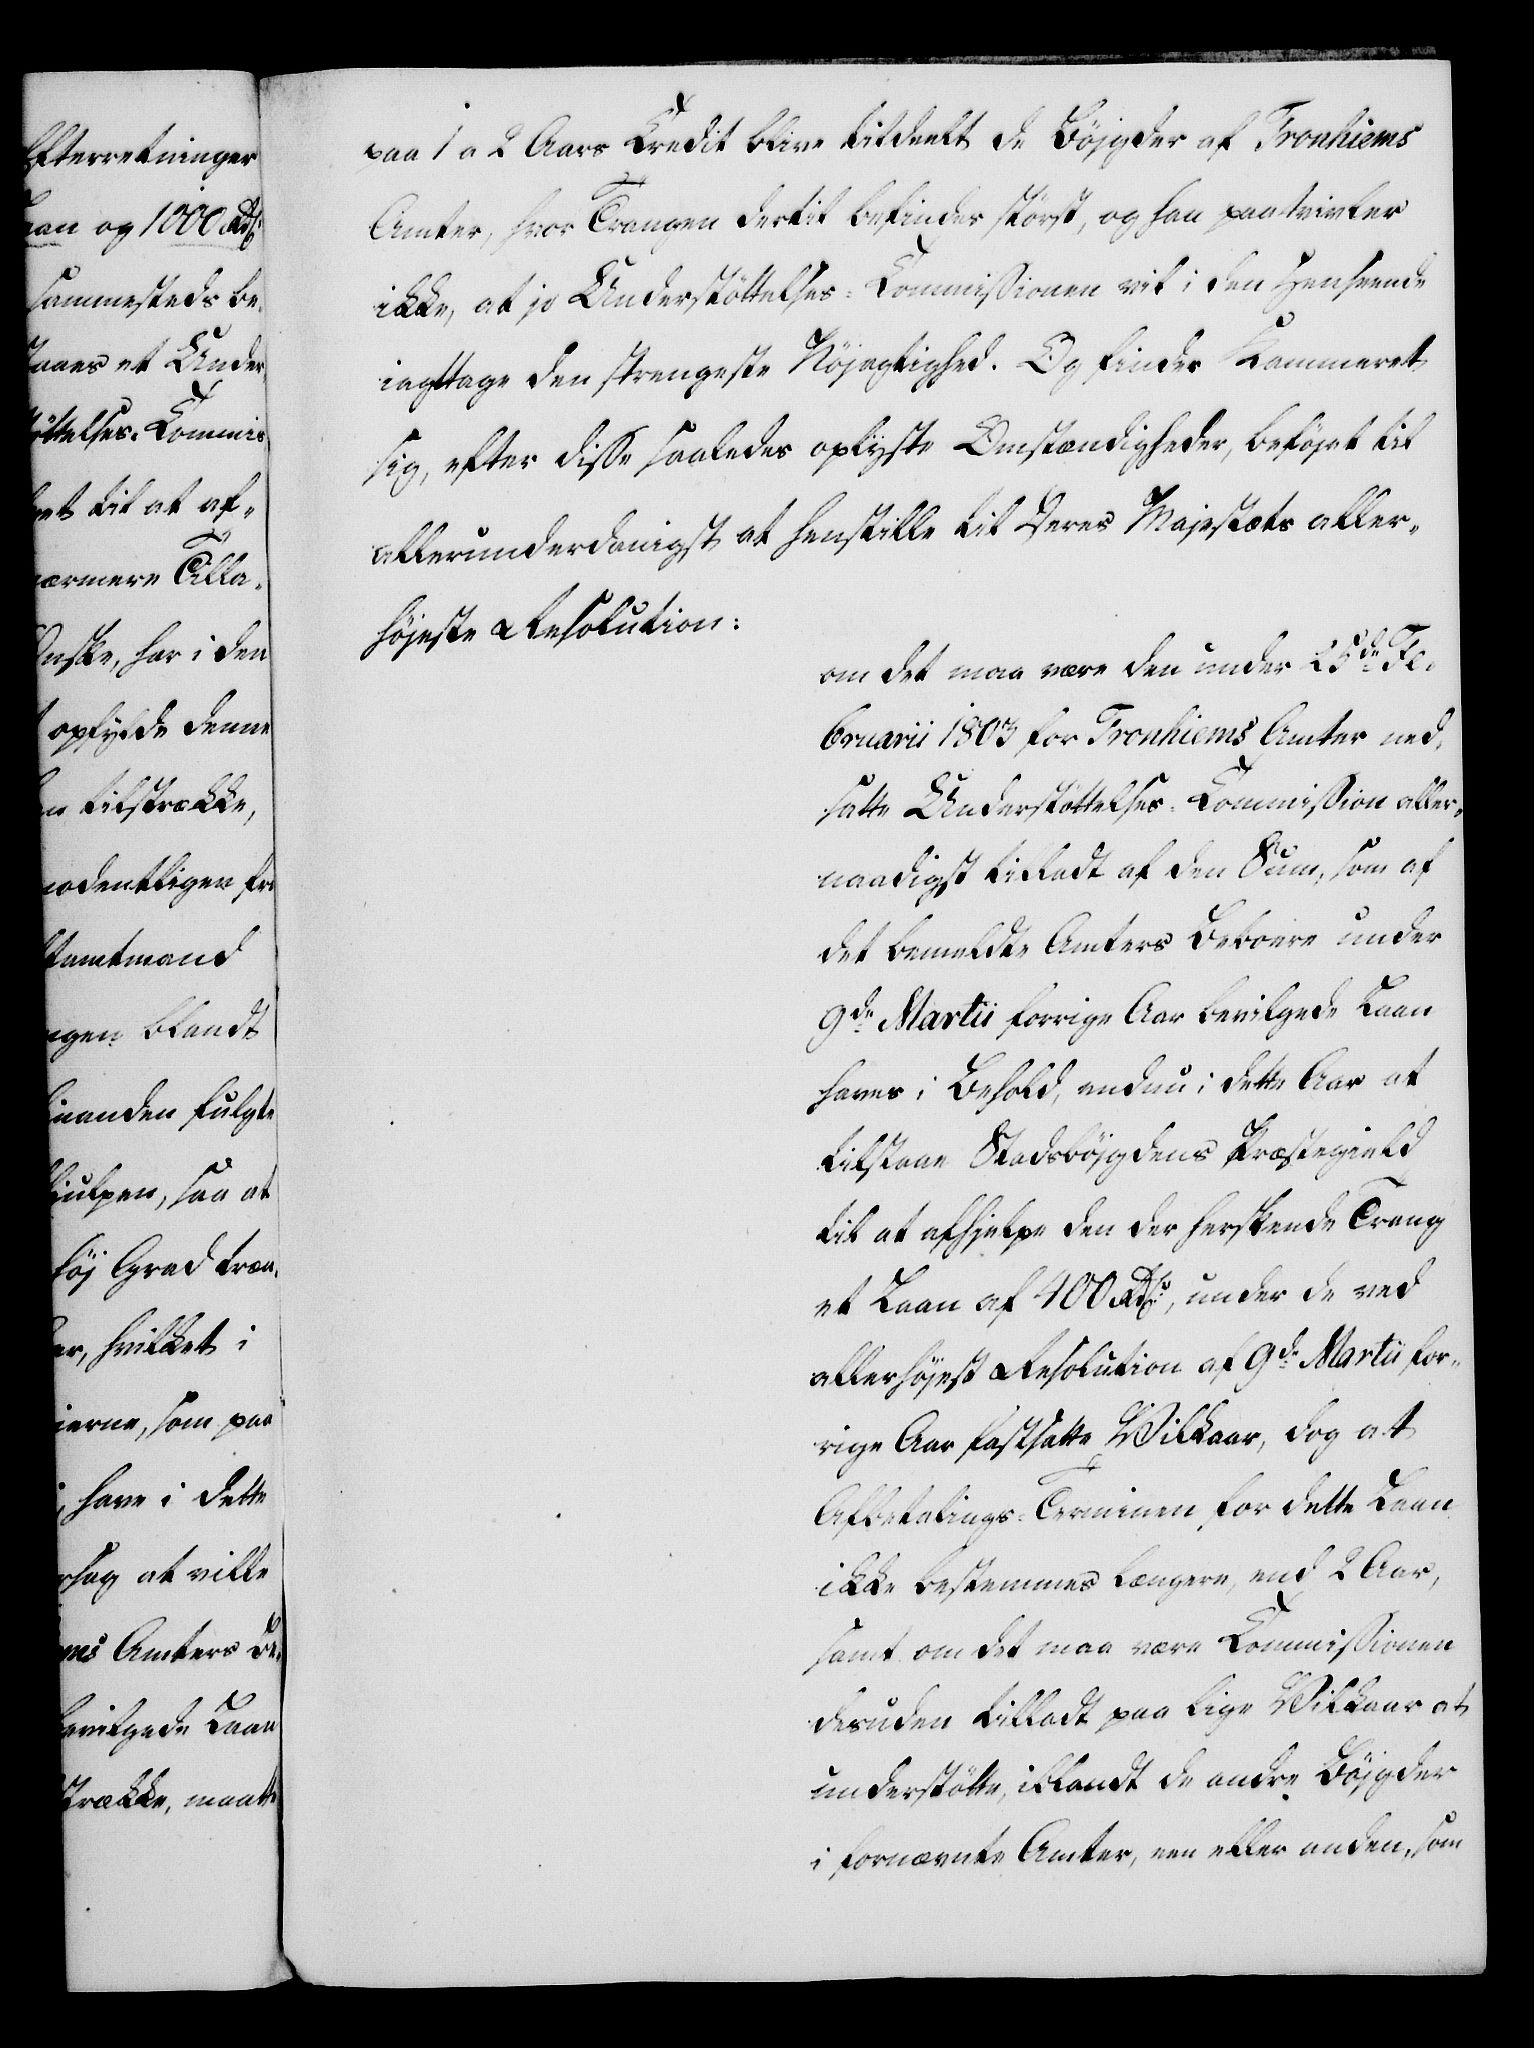 Efterretninger
aan og 1000 Rdlr
sammesteds be-
staaes et Under
støttelses-Commis
net til at af-
nærmere Tilla-
Ønske, har i den
opfylde denne
tilstrække,
nodentligen fra
tamtmand
ngen blandt
hinanden fulgte
hiulpen, saa at
høj Grad træn-
er, hvilket i
ierne, som paa
, have i dette
rslag at ville
ems Amters Be-
bevilgede Laan
strække, maatte
paa 1 a 2 Aars Credit blive tildeelt de Bøjgder af Tronhiems
Amter, hvor Trangen dertil befindes størst, og han paatvivler
ikke, at jo Understøttelses-Commissionen vil i den Henseende
iagttage den strengeste Nøjagtighed. Og finder Kammeret
sig, efter disse saaledes oplyste Omstændigheder, beføjet til
allerunderdanigst at henstille til Deres Majestæts aller-
højeste Resolution:
om det maa være den under 25de Fe-
bruarii 1803 for Tronhiems Amter ned-
satte Understøttelses-Commission aller-
naadigst tilladt af den Sum, som af
det bemeldte Amters Beboere under
9de Martii forrige Aar bevilgede Laan
haves i Behold, endnu i dette Aar at
tilstaae Stadsbøjgdens Præstegield
til at afhjelpe den der herskende Trang
et Laan af 400 Rdlr, under de ved
allerhøjest Resolution af 9de Martii for-
rige Aar fastsatte Vilkaar, dog at
Afbetalings-Terminen for dette Laan
ikke bestemmes længere, end 2 Aar,
samt om det maa være Commissionen
desuden tilladt paa lige Vilkaar at
understøtte, iblandt de andre Bøjgder
i fornævnte Amter, een eller anden, som